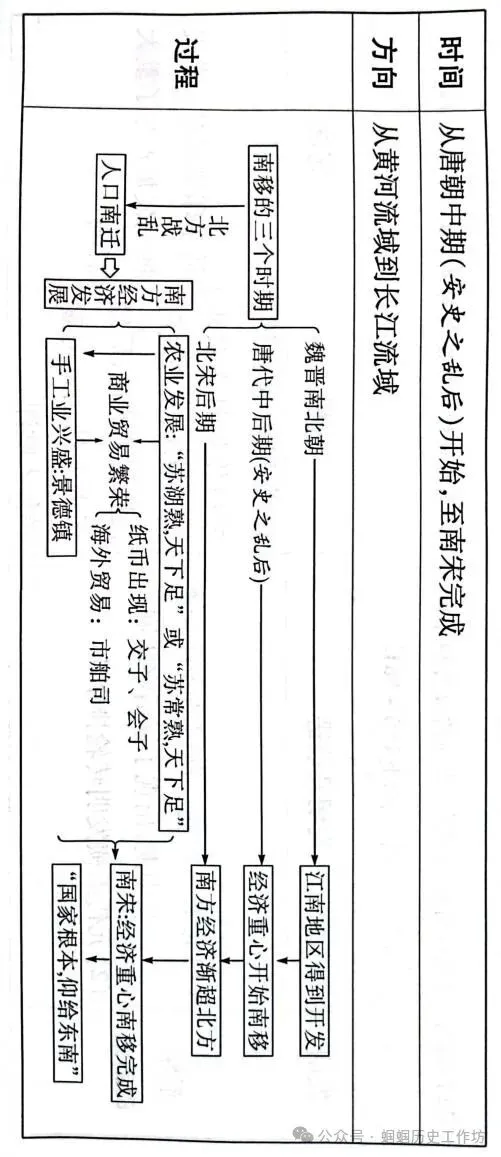 时间
从唐朝中期(安史之乱后)开始,至南宋完成
方向
从黄河流域到长江流域
过程
南移的三个时期
魏晋南北朝
江南地区得到开发
唐代中后期(安史之乱后)
经济重心开始南移
北宋后期
南方经济渐超北方
北方战乱
人口南迁
南方经济发展
农业发展:“苏湖熟,天下足”或“苏常熟,天下足”
商业贸易繁荣
纸币出现:交子、会子
海外贸易:市舶司
手工业兴盛:景德镇
南宋:经济重心南移完成
“国家根本,仰给东南”
公众号·蝈蝈历史工作坊